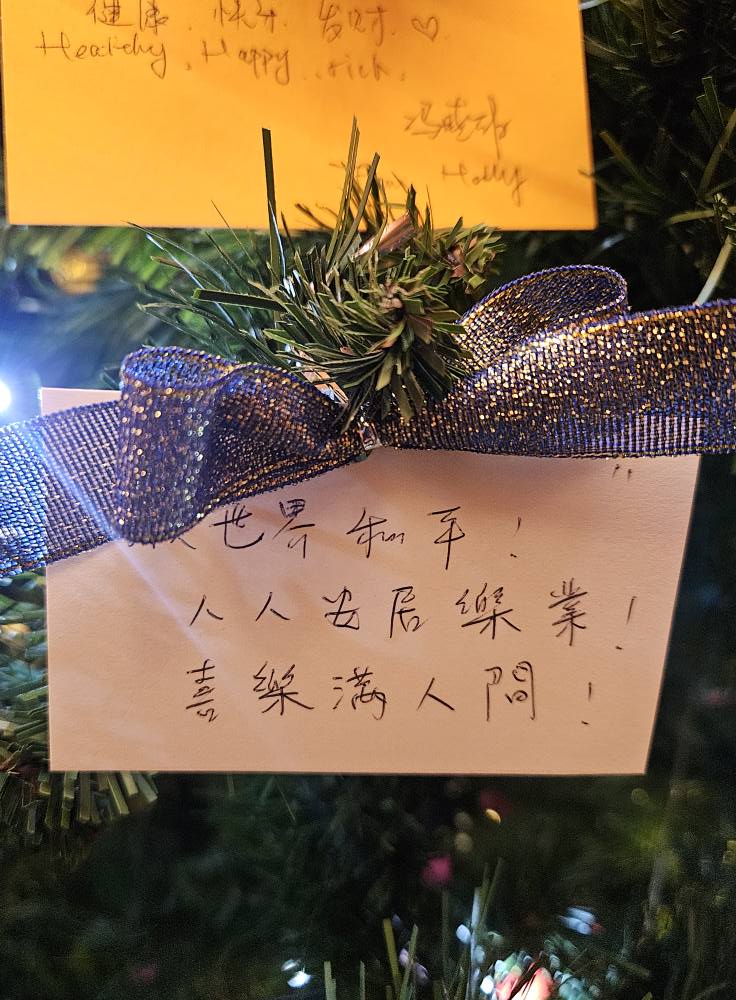 健康、快乐、发财 ♡
Healthy, Happy, rich.
Holly
世界和平！
人人安居樂業！
喜樂滿人間！